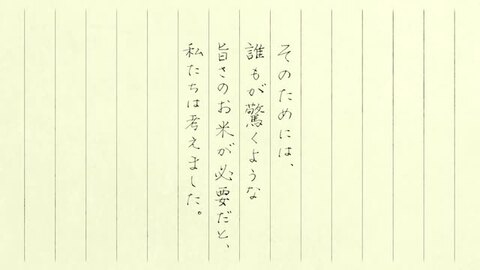 そのためには、
誰もが驚くような
旨さのお米が必要だと、
私たちは考えました。